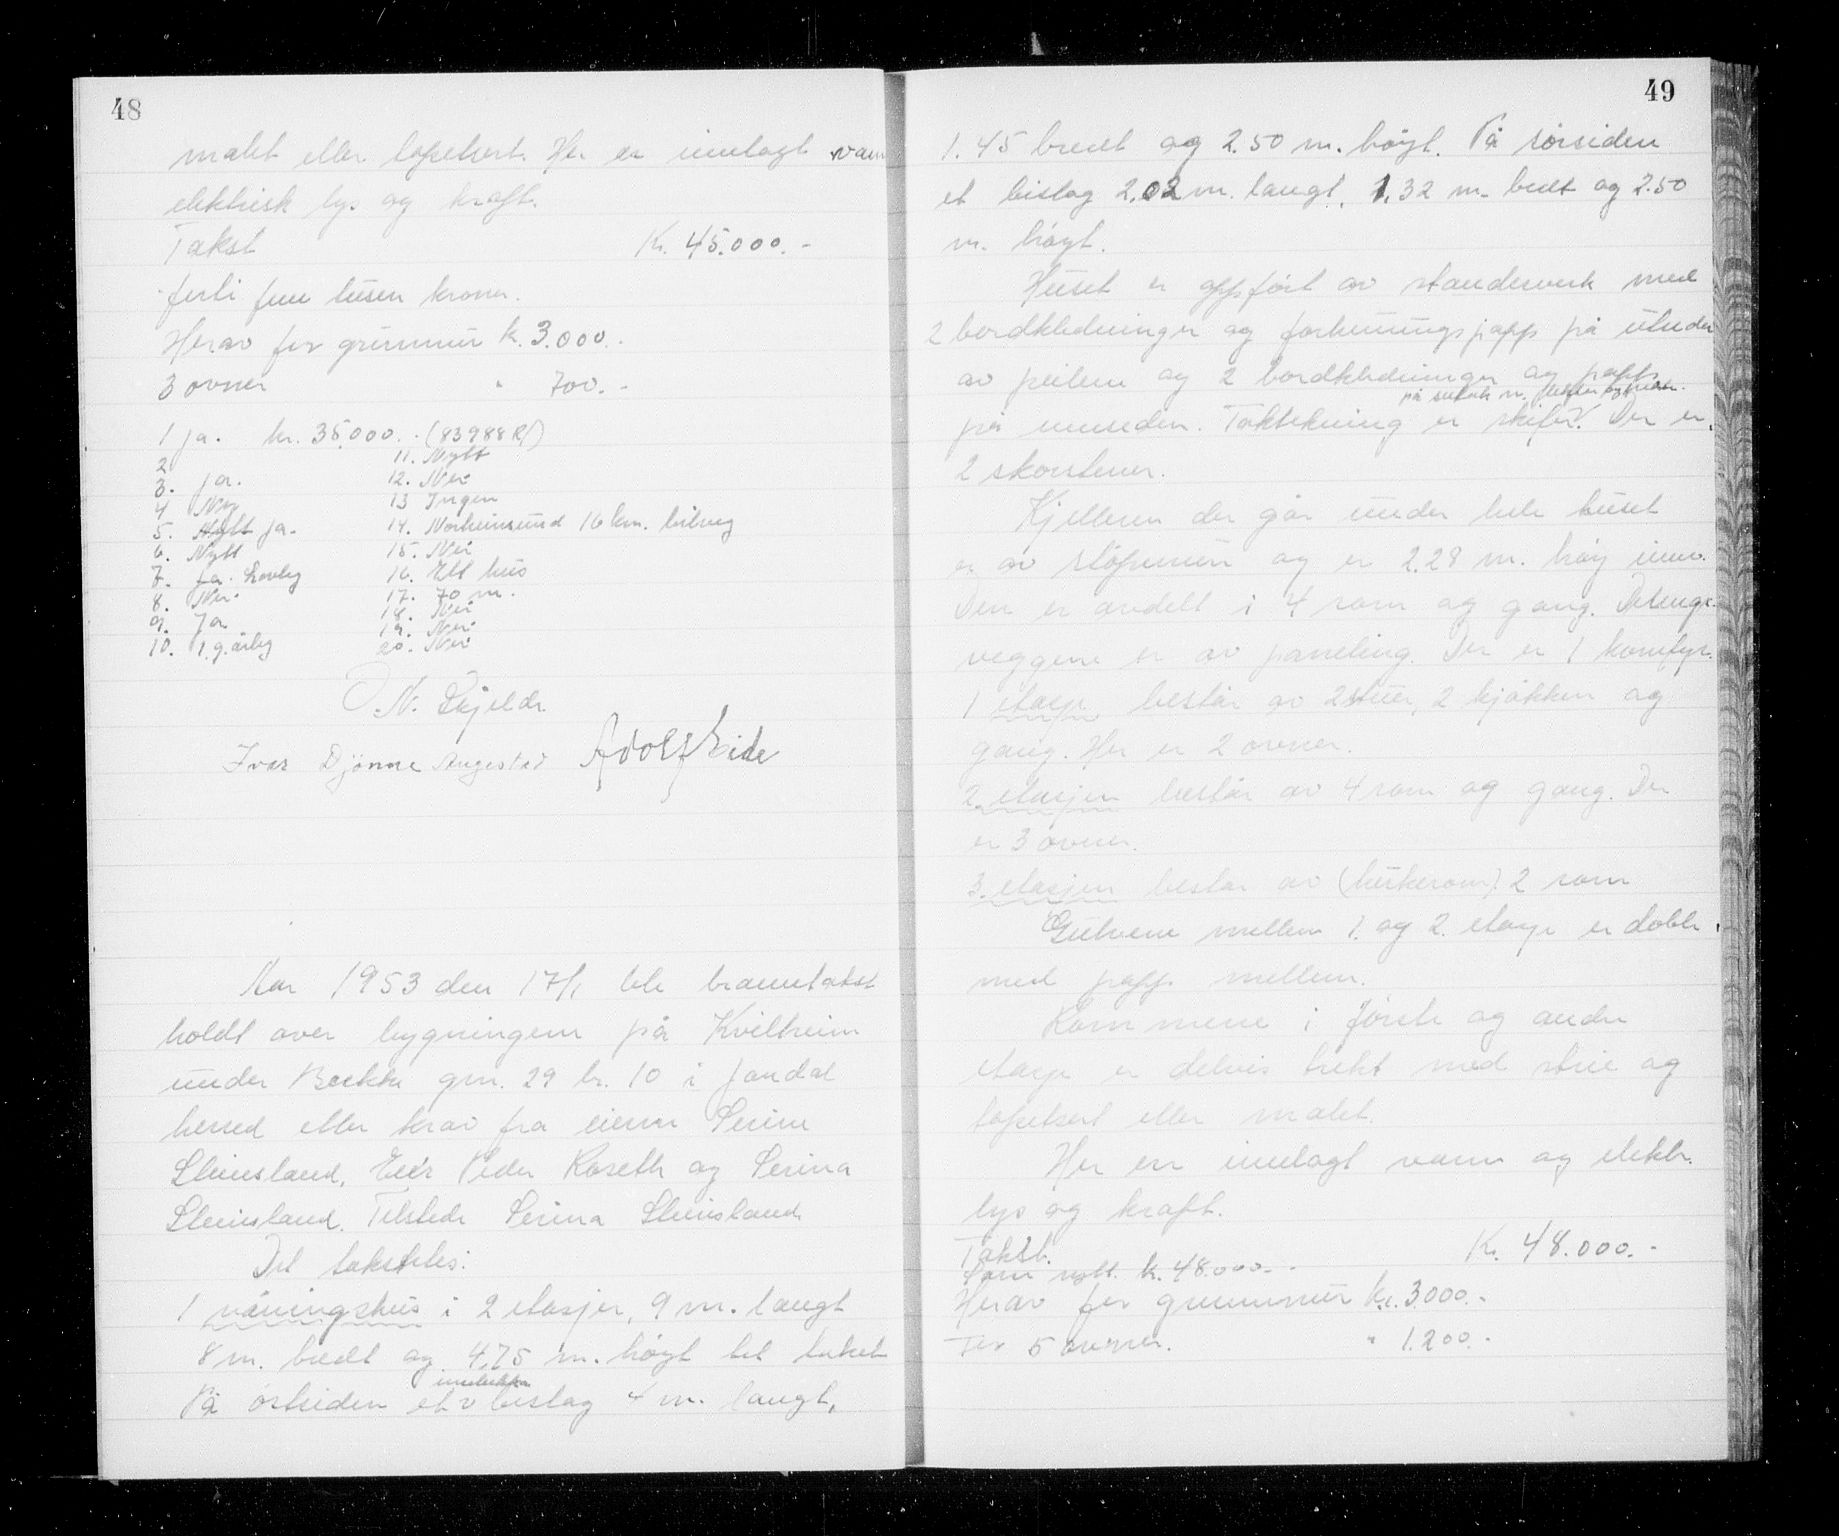 48
malt eller tapetsert. Her er innlagt vann
elektrisk lys og kraft.
Takst Kr. 45.000.-
førti fem tusen kroner.
Herav for grunnmur k. 3.000.-
3 ovner " 700.-
1 ja. kr. 35.000.- (83988 R/)
2
3. ja.
4 Ny
5. Nytt ja.
6. Nytt
7. ja. Lovleg
8. Nei
9. Ja
10. 1.g. årleg
11. Nytt
12. Nei
13 Ingen
14. Norheimsund 16 km. bilveg
15. Nei
16. Ett hus
17. 70 m.
18. Nei
19. Nei
20. Nei
N. Skjelde
Ivar Djønne Augestad Adolf Eide
Aar 1953 den 17/1 ble branntakst
holdt over bygningene på Kvilheim
under Bakke gnr. 29 br. 10 i Jondal
herred etter krav fra eierne Serine
Steinsland. Eier Peder Roseth og Serina
Steinsland. Tilstede Serina Steinsland.
Det taksteles:
1 våningshus i 2 etasjer, 9 m. langt
8 m. bredt og 4.75 m. høgt til taket
På østsiden et bislag 4 m. langt,
49
1.45 bredt og 2.50 m. høgt. På sørsiden
et bislag 2.02 m. langt, 1.32 m. bredt og 2.50
m. høgt.
Huset er oppført av standerverk med
2 bordkledninger og forhudningspapp på utsiden
av peilene og 2 bordkledninger og papp
på sutak m. lekter og
på innsiden. Taktekning er skifer. Der er
2 skorstener.
Kjelleren der går under hele huset
er av støpemur og er 2.28 m. høg innv.
Den er avdelt i 4 rom og gang. Delings-
veggene er av paneling. Der er 1 komfyr.
1 etasje består av 2 stuer, 2 kjøkken og
gang. Her er 2 ovner.
2. etasjen består av 4 rom og gang. Der
er 3 ovner.
3. etasjen består av (tørkerom) 2 rom
Gulvene mellem 1. og 2. etasje er doble
med papp mellem.
Rommene i første og andre
etasje er delvis trekt med strie og
tapetsert eller malt.
Her er innlagt vann og elektr.
lys og kraft.
Takst. Kr. 48.000.-
Som nytt. k. 48.000.-
Herav for grunnmur kr. 3.000.-
For 5 ovner. " 1.200.-